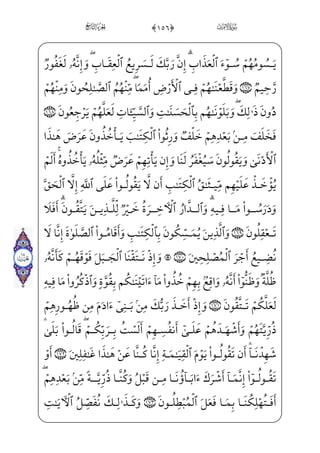 ﴿١٥٦﴾
يَسُومُهُمْ سُوٓءَ ٱلْعَذَابِ ۗ إِنَّ رَبَّكَ لَسَرِيعُ ٱلْعِقَابِ ۖ وَإِنَّهُۥ لَغَفُورٌ
رَّحِيمٌ ۝١٦٧ وَقَطَّعْنَٰهُمْ فِى ٱلْأَرْضِ أُمَمًا ۖ مِّنْهُمُ ٱلصَّٰلِحُونَ وَمِنْهُمْ
دُونَ ذَٰلِكَ ۖ وَبَلَوْنَٰهُم بِٱلْحَسَنَٰتِ وَٱلسَّيِّـَٔاتِ لَعَلَّهُمْ يَرْجِعُونَ ۝١٦٨
فَخَلَفَ مِنۢ بَعْدِهِمْ خَلْفٌ وَرِثُوا۟ ٱلْكِتَٰبَ يَأْخُذُونَ عَرَضَ هَٰذَا
ٱلْأَدْنَىٰ وَيَقُولُونَ سَيُغْفَرُ لَنَا وَإِن يَأْتِهِمْ عَرَضٌ مِّثْلُهُۥ يَأْخُذُوهُ ۚ أَلَمْ
يُؤْخَذْ عَلَيْهِم مِّيثَٰقُ ٱلْكِتَٰبِ أَن لَّا يَقُولُوا۟ عَلَى ٱللَّهِ إِلَّا ٱلْحَقَّ
وَدَرَسُوا۟ مَا فِيهِ ۗ وَٱلدَّارُ ٱلْـَٔاخِرَةُ خَيْرٌ لِّلَّذِينَ يَتَّقُونَ ۗ أَفَلَا
تَعْقِلُونَ ۝١٦٩ وَٱلَّذِينَ يُمَسِّكُونَ بِٱلْكِتَٰبِ وَأَقَامُوا۟ ٱلصَّلَوٰةَ إِنَّا لَا
نُضِيعُ أَجْرَ ٱلْمُصْلِحِينَ ۝١٧٠ وَإِذ نَتَقْنَا ٱلْجَبَلَ فَوْقَهُمْ كَأَنَّهُۥ
ظُلَّةٌ وَظَنُّوٓا۟ أَنَّهُۥ وَاقِعٌۢ بِهِمْ خُذُوا۟ مَآ ءَاتَيْنَٰكُم بِقُوَّةٍ وَٱذْكُرُوا۟ مَا فِيهِ
لَعَلَّكُمْ تَتَّقُونَ ۝١٧١ وَإِذْ أَخَذَ رَبُّكَ مِنۢ بَنِىٓ ءَادَمَ مِن ظُهُورِهِمْ
ذُرِّيَّتَهُمْ وَأَشْهَدَهُمْ عَلَىٰٓ أَنفُسِهِمْ أَلَسْتُ بِرَبِّكُمْ ۖ قَالُوا۟ بَلَىٰ ۛ
شَهِدْنَآ ۛ أَن تَقُولُوا۟ يَوْمَ ٱلْقِيَٰمَةِ إِنَّا كُنَّا عَنْ هَٰذَا غَٰفِلِينَ ۝١٧٢ أَوْ
تَقُولُوٓا۟ إِنَّمَآ أَشْرَكَ ءَابَآؤُنَا مِن قَبْلُ وَكُنَّا ذُرِّيَّةً مِّنۢ بَعْدِهِمْ ۖ
أَفَتُهْلِكُنَا بِمَا فَعَلَ ٱلْمُبْطِلُونَ ۝١٧٣ وَكَذَٰلِكَ نُفَصِّلُ ٱلْـَٔايَٰتِ